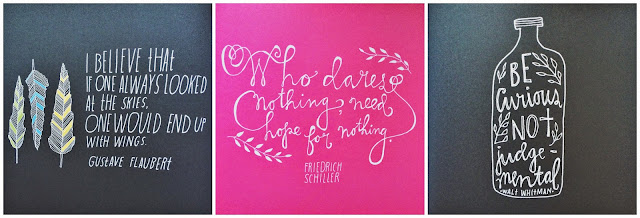 I BELIEVE THAT
IF ONE ALWAYS LOOKED
AT THE SKIES,
ONE WOULD END UP
WITH WINGS.
GUSTAVE FLAUBERT
Who dares
nothing, need
hope for nothing.
FRIEDRICH
SCHILLER
BE
Curious,
NOT
judge-
mental
WALT WHITMAN.